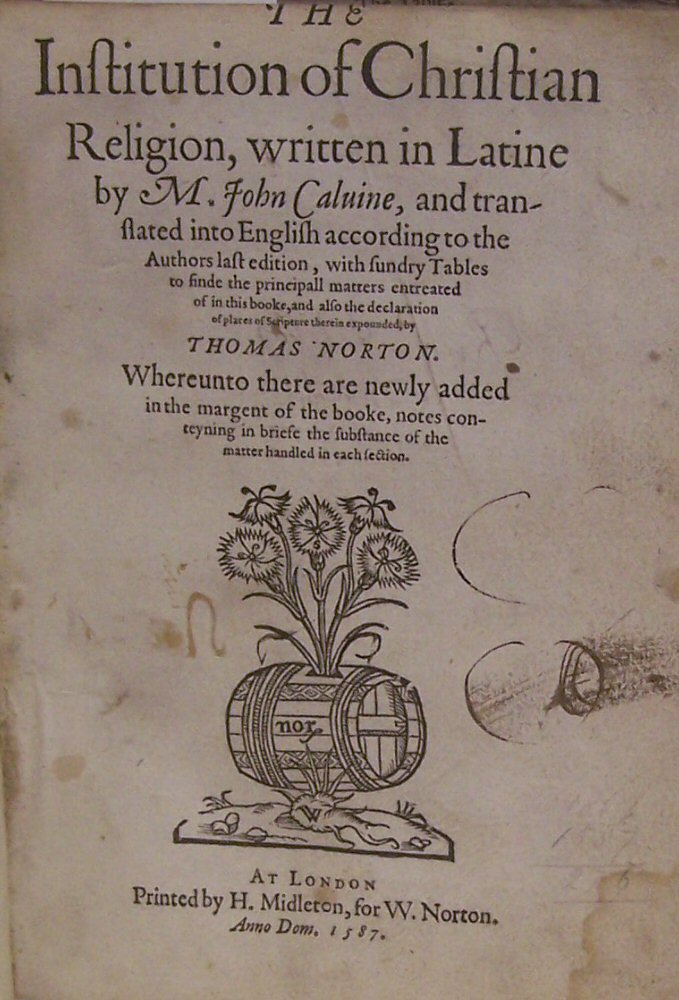 THE
Inſtitution of Chriſtian
Religion, written in Latine
by M. John Caluine, and tran-
ſlated into Engliſh according to the
Authors laſt edition, with ſundry Tables
to finde the principall matters entreated
of in this booke, and alſo the declaration
of places of Scripture therein expounded, by
THOMAS NORTON.
Whereunto there are newly added
in the margent of the booke, notes con-
teyning in briefe the ſubſtance of the
matter handled in each ſection.
S
nor.
W
AT LONDON
Printed by H. Midleton, for W. Norton.
Anno Dom. 1587.